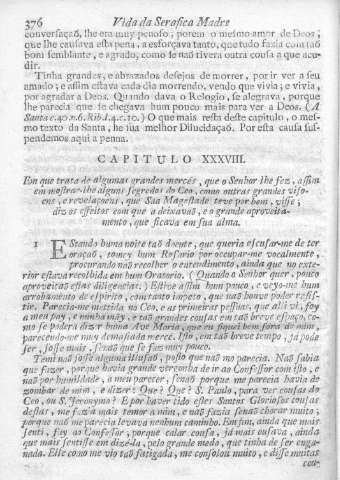 376 Vida da Serafica Madre
conversaçaõ, lhe era muy penoso; porèm o mesmo amor de Deos,
que lhe causava esta pena, a esforçava tanto, que tudo fazia com taõ
bom semblante, e agrado, como se naõ tivera outra cousa a que acu-
dir.
Tinha grandes, e abrazados desejos de morrer, por ir ver a seu
amado; e assim estava cada dia morrendo, vendo que vivia; e vivia,
por agradar a Deos. Quando dava o Relogio, se alegrava, porque
lhe parecia que se chegava hum pouco mais para ver a Deos. (A
Santa c.40.n.6. Rib.l.4.c.10.) O que mais resta deste capitulo, o mes-
mo texto da Santa, he sua melhor Dilucidaçaõ. Por esta causa sus-
pendemos aqui a penna.
CAPITULO XXXVIII.
Em que trata de algumas grandes mercês, que o Senhor lhe fez, assim
em mostrar-lhe alguns segredos do Ceo, como outras grandes visо-
ens, e revelaçoens, que Sua Magestade teve por bem, visse;
diz os effeitos com que a deixavaõ, e o grande aproveita-
mento, que ficava em sua alma.
1 EStando huma noite taõ doente, que queria escusar-me de ter
oraçaõ, tomey hum Rosario por occupar-me vocalmente,
procurando naõ recolher o entendimento, ainda que no exte-
rior estava recolhida em hum Oratorio. (Quando o Senhor quer, pouco
aproveitaõ estas diligencias.) Estive assim hum pouco, e veyo-me hum
arrobamento de espirito, com tanto impeto, que naõ houve poder resis-
tir. Parecia-me metida no Ceo, e as primeiras pessoas, que alli vi, foy
a meu pay, e minha mãy, e taõ grandes cousas em taõ breve espaço, co-
mo se podera dizer huma Ave Maria, que eu fiquei bem fóra de mim,
parecendo-me muy demasiada mercê. Isto, em taõ breve tempo, já pode
ser, fosse mais, senaõ que se faz muy pouco.
Temi naõ fosse alguma illusaõ, posto que naõ me parecia. Naõ sabia
que fazer, porque havia grande vergonha de ir ao Confessor com isto, e
naõ por humildade, a meu parecer, senaõ porque me parecia havia de
zombar de mim, e dizer: Que? Que? S. Paulo, para ver cousas do
Ceo, ou S. Jeronymo? E por haver tido estes Santos Gloriosos cousas
destas, me fazia mais temor a mim, e naõ fazia senaõ chorar muito;
porque naõ me parecia levava nenhum caminho. Em fim, ainda que mais
senti, foy ao Confessor, porque calar cousa, já mais ousava, ainda
que mais sentisse em dizê-la, pelo grande medo, que tinha de ser enga-
nada. Elle como me vio taõ fatigada, me consolou muito, e disse muitas
cou-